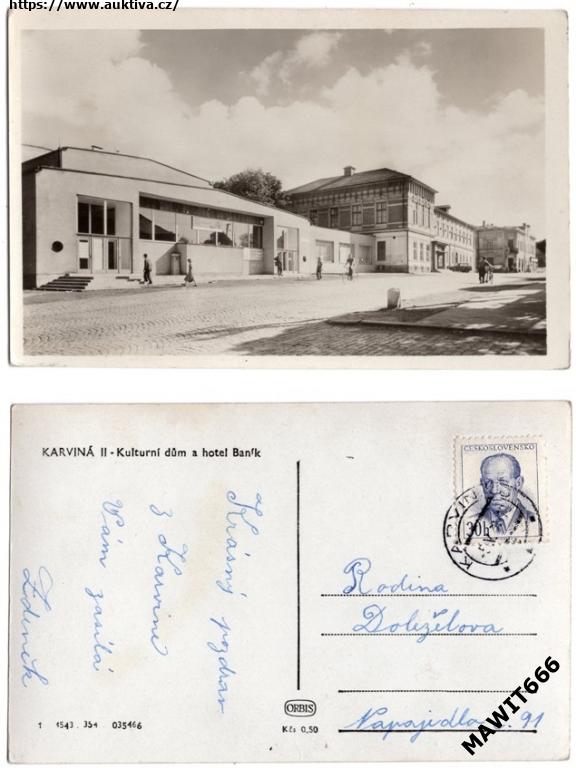 https://www.auktiva.cz/
KARVINÁ II - Kulturní dům a hotel Baník
Krásný pozdrav
z Karviné
Vám zasílá
Zdeněk
ČESKOSLOVENSKO
30h
KARVINÁ
Rodina
Doležělova
Napajedla č. 91
ORBIS
Kčs 0,50
1 1543. 354 035466
MAWIT666